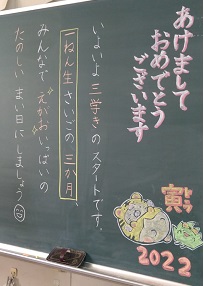 あけまして
おめでとう
ございます
寅年
2022
いよいよ三学きのスタートです。
一ねん生さいごの三か月、
みんなでえがおいっぱいの
たのしいまい日にしましょう